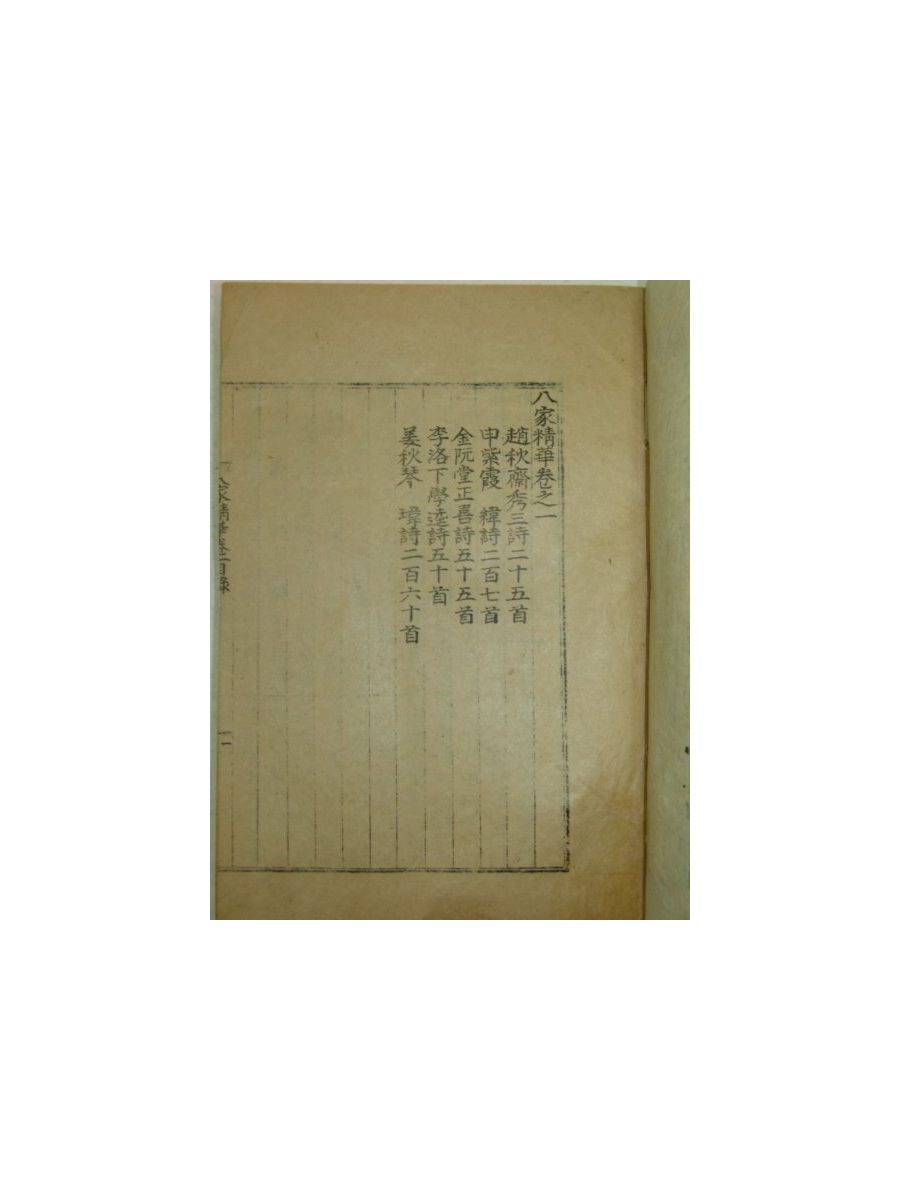 八家精華卷之一
趙秋齋秀三詩二十五首
申紫霞 緯詩二百七首
金阮堂正喜詩五十五首
李洛下學逵詩五十首
姜秋琴 瑋詩二百六十首
八家精華卷一目錄
一